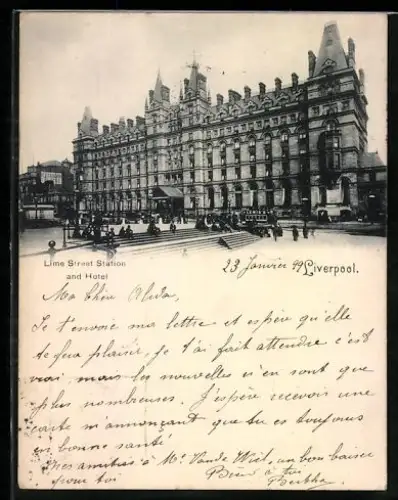 Lime Street Station
and Hotel
23 Janvier 99 Liverpool.
Ma Chère Alida,
Je t'envoie ma lettre et espère qu'elle
te fera plaisir, je t'ai fait attendre c'est
vrai mais les nouvelles n'en sont que
plus nombreuses. J'espère recevoir une
carte m'annonçant que tu es toujours
en bonne santé
Mes amitiés à Mr Vande Wiel, un bon baiser
pour toi Bien à toi
Berthe.